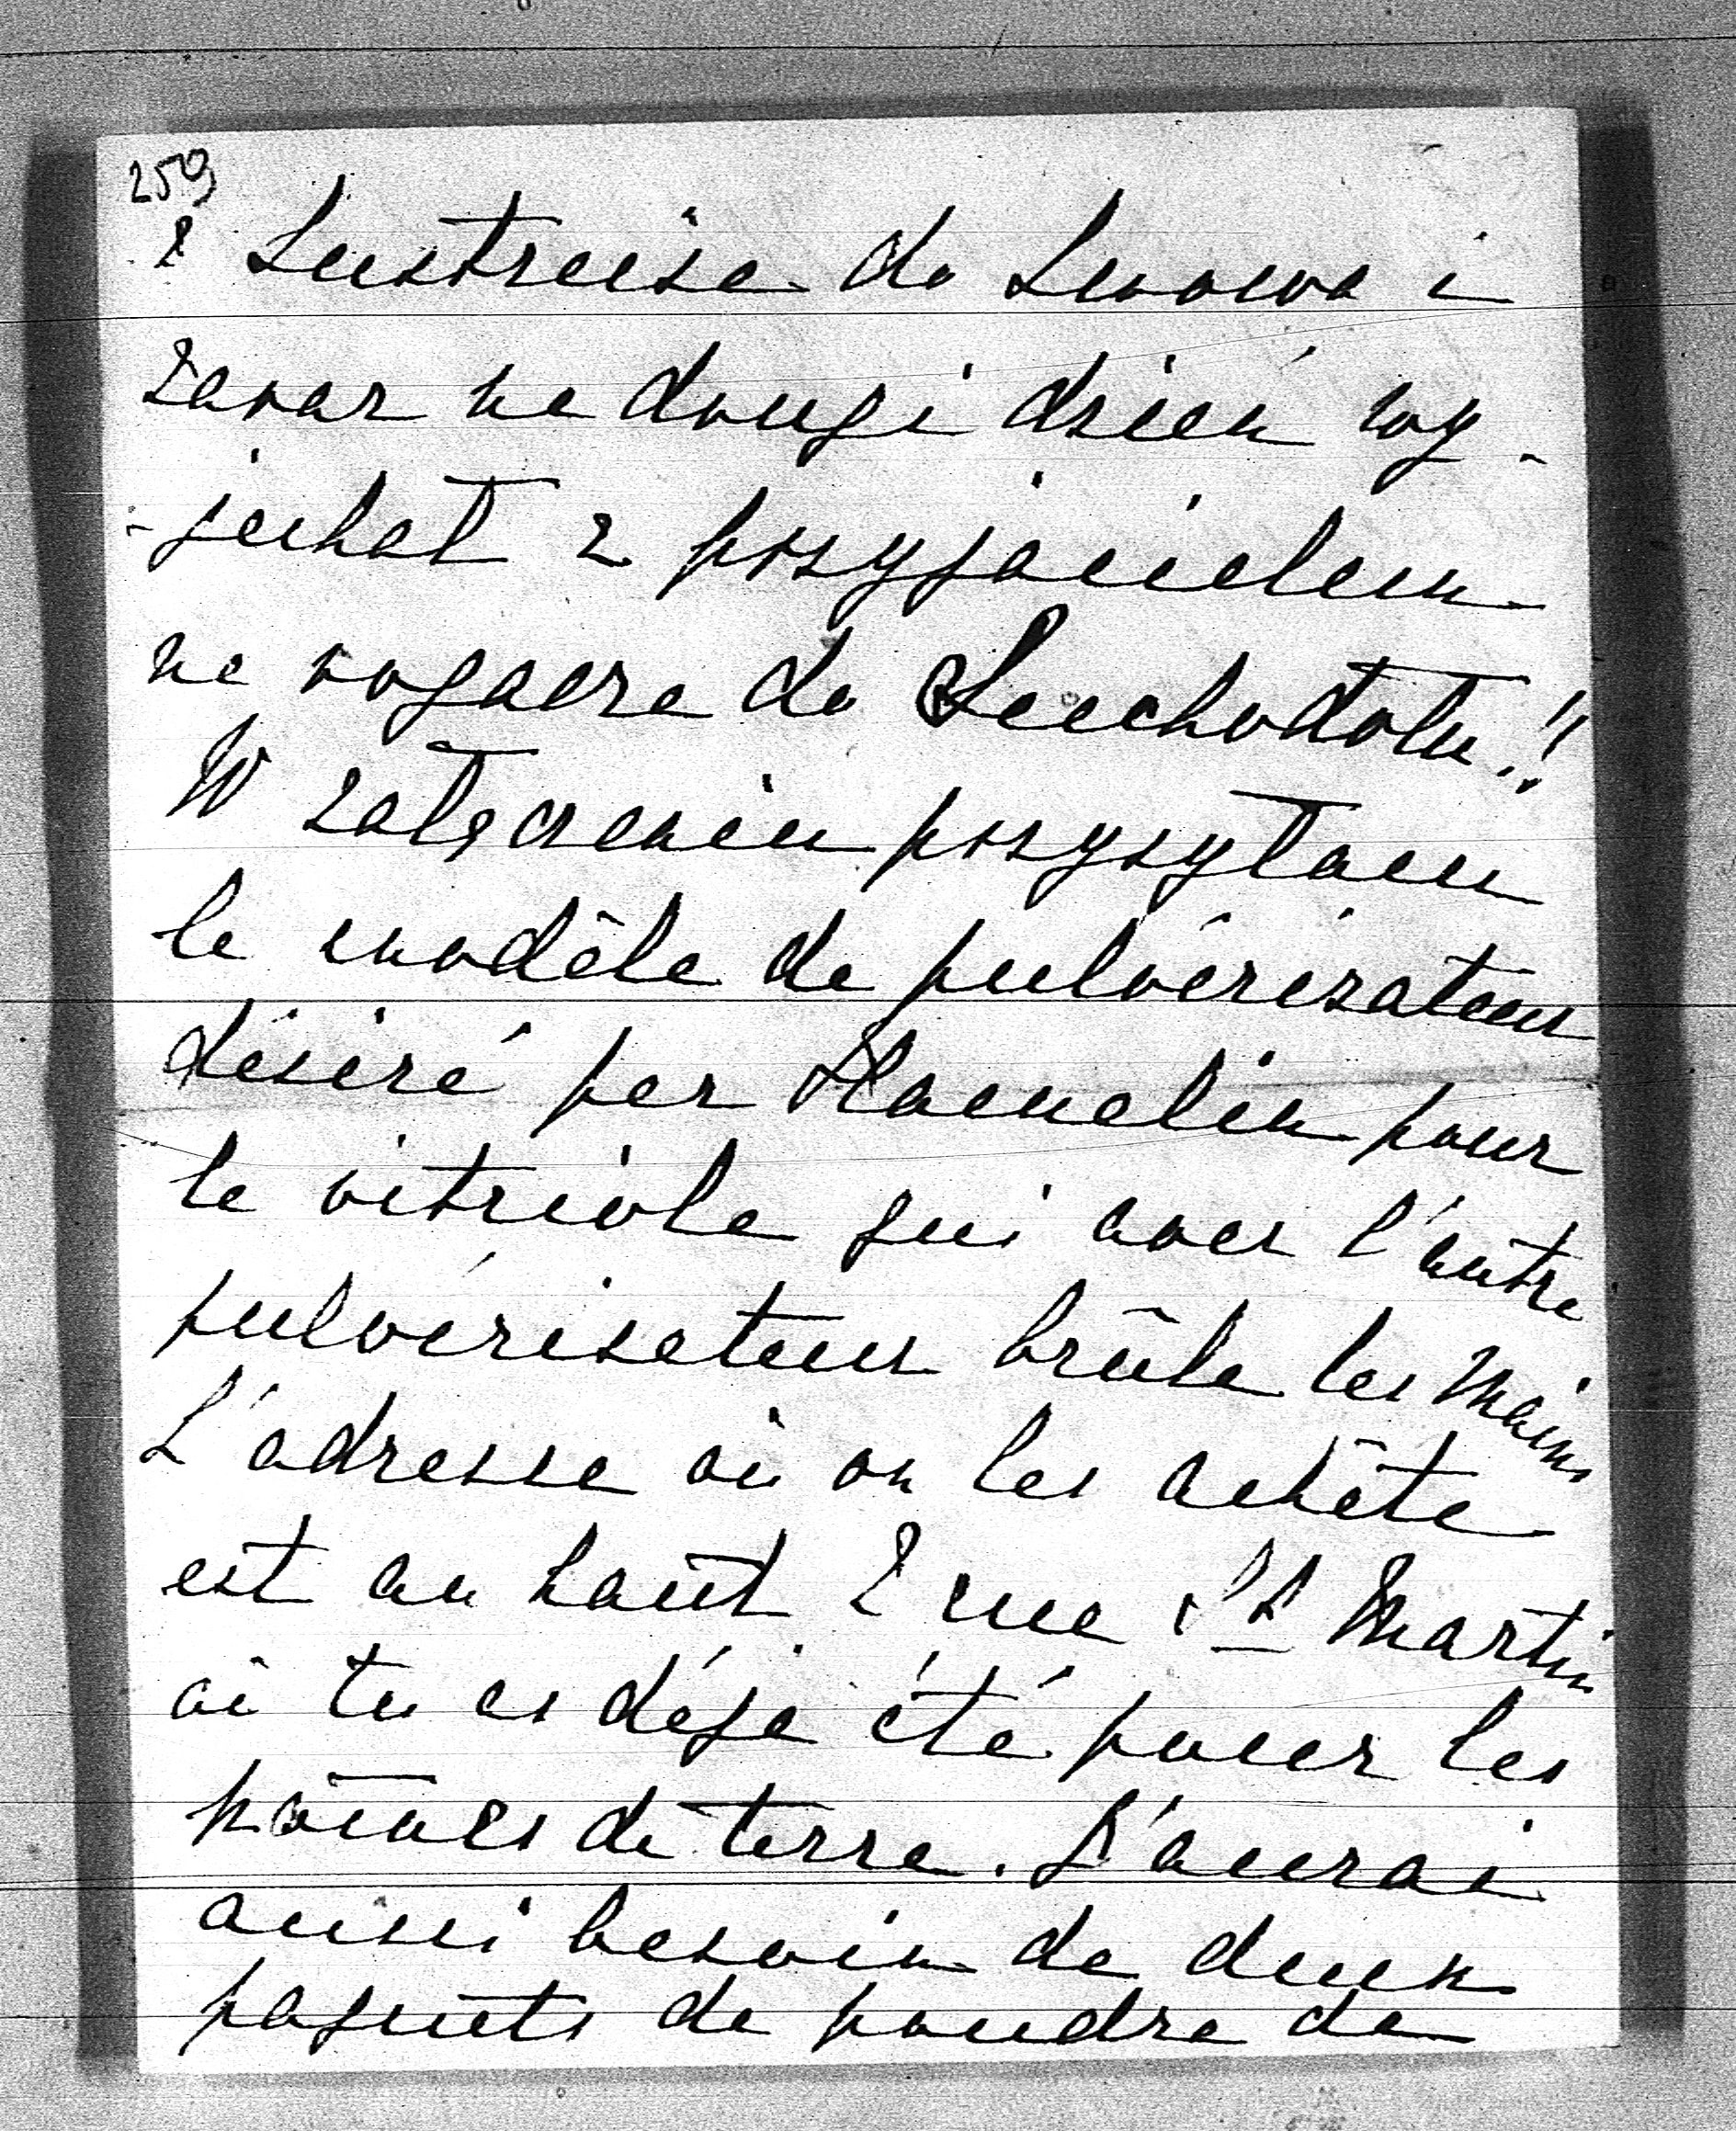 259
z Lustreise do Lwowa i
zaraz na drugi dzień wy-
-jechał z przyjacielem
na rogacze do Suchodołu!!
W załączeniu przysyłam
le modèle de pulvérisateur
désiré par Hamelin pour
le vitriole qui avec l'autre
pulvérisateur brûle les mains
L'adresse où on les achète
est au haut 2 rue St Martin
où tu as déjà été pour les
poires de terre. J'aurai
aussi besoin de deux
paquets de poudre de